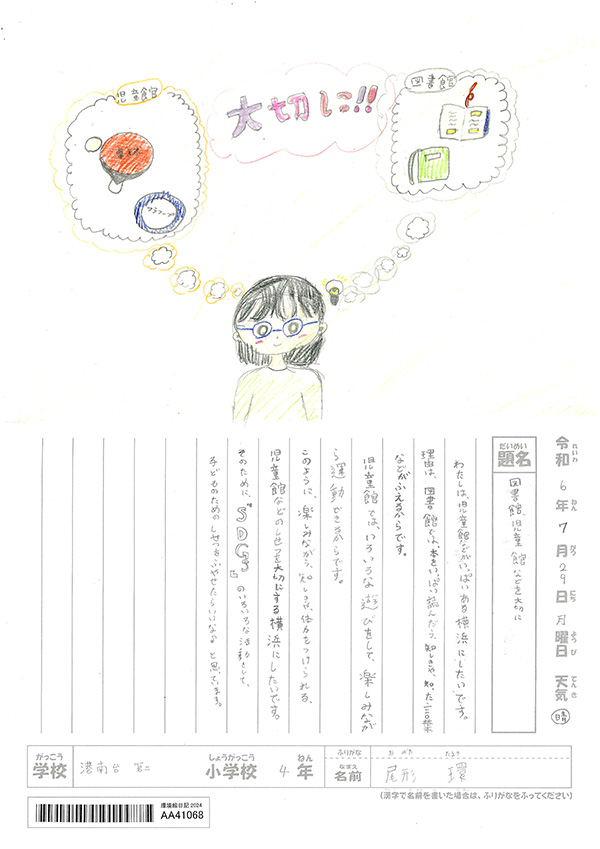 児童館
大切に!!
図書館
フラフープ
令和6年7月29日月曜日 天気 晴
れいわ ねん がつ にち ようび てんき
だいめい
題名
図書館、児童館などを大切に
わたしは、児童館などがいっぱいある横浜にしたいです。
理由は、図書館では、本をいっぱい読んだら、知しきや、知った言葉
などがふえるからです。
児童館では、いろいろな遊びをして、楽しみなが
ら運動できるからです。
このように、楽しみながら、知しきや、体力をつけられる、
児童館などのしせつを大切にする横浜にしたいです。
そのために、『SDGs』のいろいろな活動をして、
子どものためのしせつをふやせたらいいなぁと思っています。
がっこう
学校
港南台第二
しょうがっこう
小学校
4
ねん
年
ふりがな
おがた たまき
なまえ
名前
尾形 環
(漢字で名前を書いた場合は、ふりがなをふってください)
環境絵日記2024
AA41068